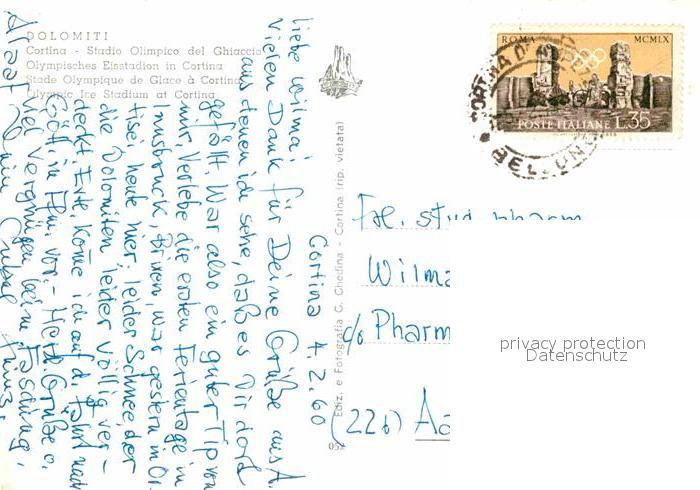 DOLOMITI
Cortina - Stadio Olimpico del Ghiaccio
Olympisches Eisstadion in Cortina
Stade Olympique de Glace à Cortina
Olympic Ice Stadium at Cortina
ROMA MCMLX
POSTE ITALIANE L.35
Ediz. e Fotografia G. Ghedina - Cortina (rip. vietata)
Cortina 4.2.60
Liebe Wilma!
Vielen Dank für Deine Grüße aus A.
aus denen ich sehe, daß es Dir dort
gefällt. War also ein guter Tip von
mir. Verlebe die ersten Ferientage in
Innsbruck, Brixen, war gestern in
heute hier; leider Schnee, der
die Dolomiten leider völlig ver-
deckt. Evtl. komme ich auf d. Fahrt nach
vor. - Herzl. Grüße u.
viel Vergnügen beim Fasching,
Frl. stud. pharm.
Wilma
c/o Pharm
(22b)
privacy protection
Datenschutz